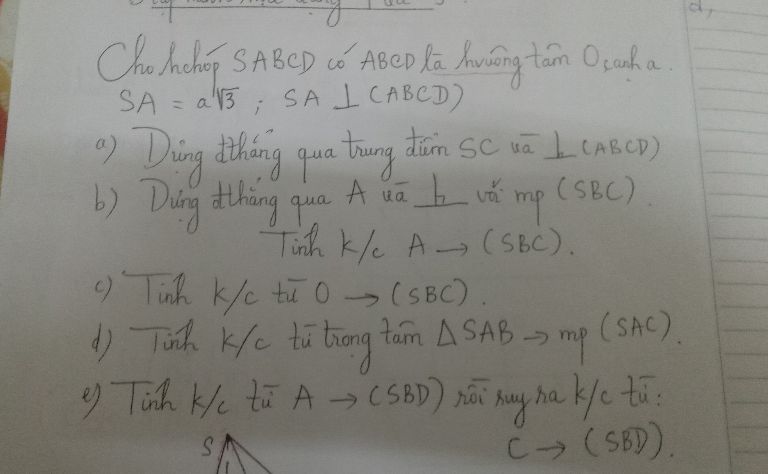 d,
Cho hchóp SABCD có ABCD là hvuông tâm O, cạnh a.
SA = a√3 ; SA ⊥ (ABCD)
a) Dựng đthẳng qua trung điểm SC và ⊥ (ABCD)
b) Dựng đthẳng qua A và ⊥ với mp (SBC).
Tính k/c A → (SBC).
c) Tính k/c từ O → (SBC).
d) Tính k/c từ trọng tâm Δ SAB → mp (SAC).
e) Tính k/c từ A → (SBD) rồi suy ra k/c từ:
C → (SBD).
S